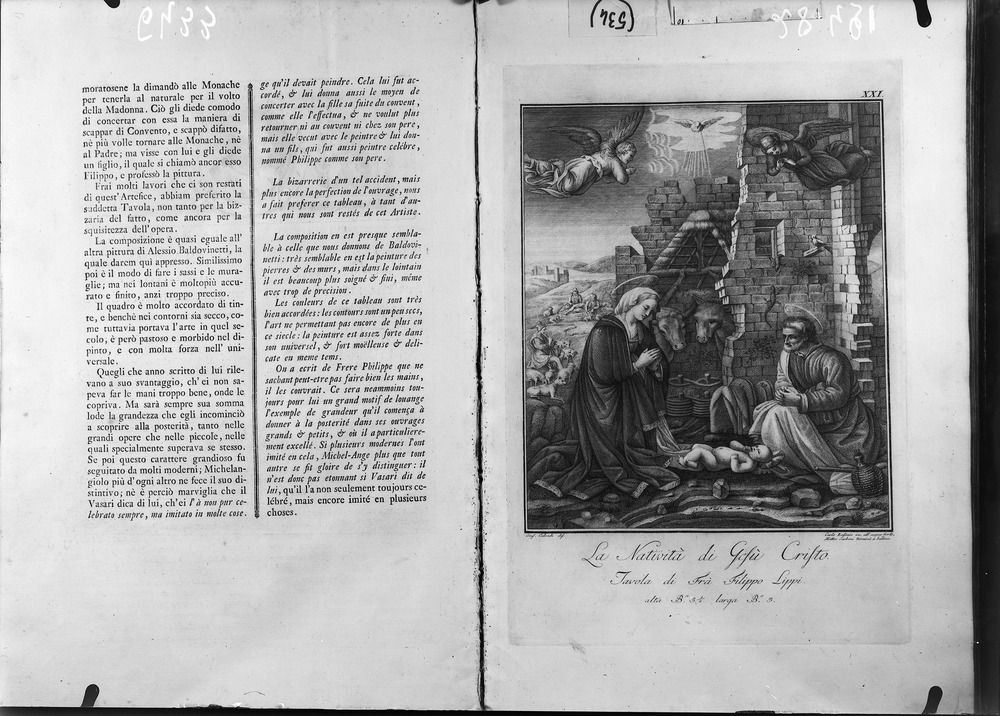 moratosene la dimandò alle Monache
per tenerla al naturale per il volto
della Madonna. Ciò gli diede comodo
di concertar con essa la maniera di
scappar di Convento, e scappò difatto,
nè più volle tornare alle Monache, nè
al Padre; ma visse con lui e gli diede
un figlio, il quale si chiamò ancor esso
Filippo, e professò la pittura.
Frai molti lavori che ci son restati
di quest'Artefice, abbiam preferito la
suddetta Tavola, non tanto per la biz-
zaria del fatto, come ancora per la
squisitezza dell'opera.
La composizione è quasi eguale all'
altra pittura di Alessio Baldovinetti, la
quale darem qui appresso. Similissimo
poi è il modo di fare i sassi e le mura-
glie; ma nei lontani è moltopiù accu-
rato e finito, anzi troppo preciso.
Il quadro è molto accordato di tin-
te, e benchè nei contorni sia secco, co-
me tuttavia portava l'arte in quel se-
colo, è però pastoso e morbido nel di-
pinto, e con molta forza nell' uni-
versale.
Quegli che anno scritto di lui rile-
vano a suo svantaggio, ch'ei non sa-
peva far le mani troppo bene, onde le
copriva. Ma sarà sempre sua somma
lode la grandezza che egli incominciò
a scoprire alla posterità, tanto nelle
grandi opere che nelle piccole, nelle
quali specialmente superava se stesso.
Se poi questo carattere grandioso fu
seguitato da molti moderni; Michelan-
giolo più d'ogni altro ne fece il suo di-
stintivo; nè è perciò marviglia che il
Vasari dica di lui, ch'ei l'à non pur ce-
lebrato sempre, ma imitato in molte cose.
ge qu'il devait peindre. Cela lui fut ac-
cordé, & lui donna aussi le moyen de
concerter avec la fille sa fuite du couvent,
comme elle l'effectua, & ne voulut plus
retourner ni au couvent ni chez son pere,
mais elle vecut avec le peintre & lui don-
na un fils, qui fut aussi peintre celébre,
nommé Philippe comme son pere.
La bizarrerie d'un tel accident, mais
plus encore la perfection de l'ouvrage, nous
a fait preferer ce tableau, à tant d'au-
tres qui nous sont restés de cet Artiste.
La composition en est presque sembla-
ble à celle que nous donnons de Baldovi-
netti: très semblable en est la peinture des
pierres & des murs, mais dans le lointain
il est beaucoup plus soigné & fini, même
avec trop de precision.
Les couleurs de ce tableau sont très
bien accordées: les contours sont un peu secs,
l'art ne permettant pas encore de plus en
ce siecle: la peinture est assez forte dans
son universel, & fort moëlleuse & deli-
cate en meme tems.
On a ecrit de Frere Philippe que ne
sachant peut-etre pas faire bien les mains,
il les couvrait. Ce sera neammoins tou-
jours pour lui un grand motif de louange
l'exemple de grandeur qu'il començà à
donner à la posterité dans ses ouvrages
grands & petits, & où il a particuliere-
ment excellé. Si plusieurs modernes l'ont
imité en cela, Michel-Ange plus que tout
autre se fit gloire de s'y distinguer: il
n'est donc pas etonnant si Vasari dit de
lui, qu'il l'a non seulement toujours ce-
lébré, mais encore imité en plusieurs
choses.
534
XXI.
La Natività di Gesù Cristo
Tavola di Frà Filippo Lippi